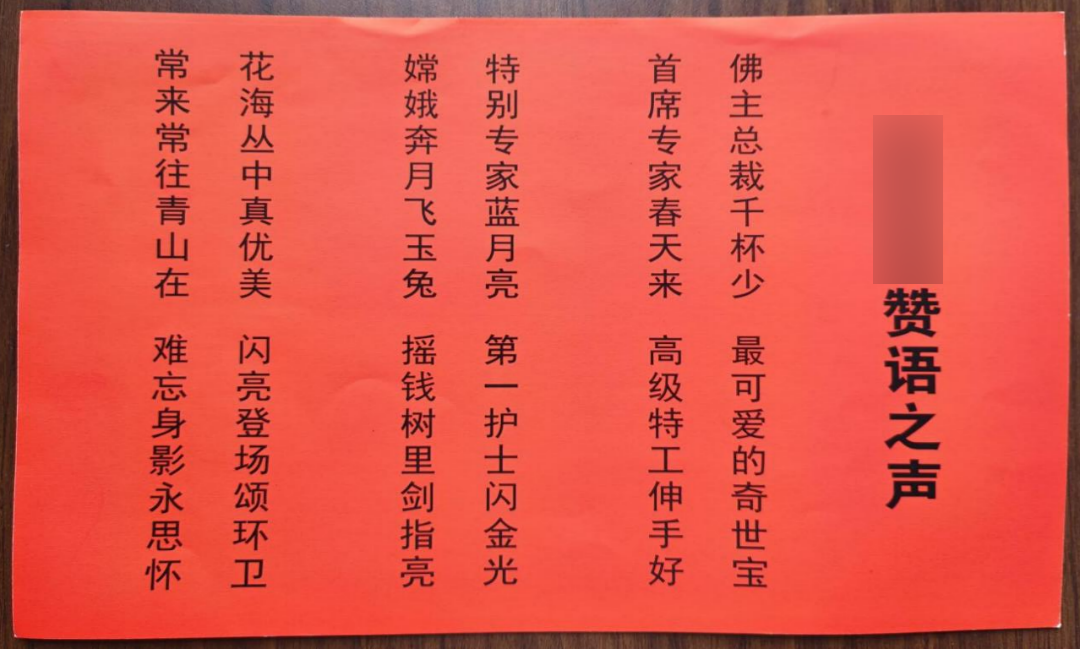 赞语之声
佛主总裁千杯少 最可爱的奇世宝
首席专家春天来 高级特工伸手好
特别专家蓝月亮 第一护士闪金光
嫦娥奔月飞玉兔 摇钱树里剑指亮
花海丛中真优美 闪亮登场颂环卫
常来常往青山在 难忘身影永思怀